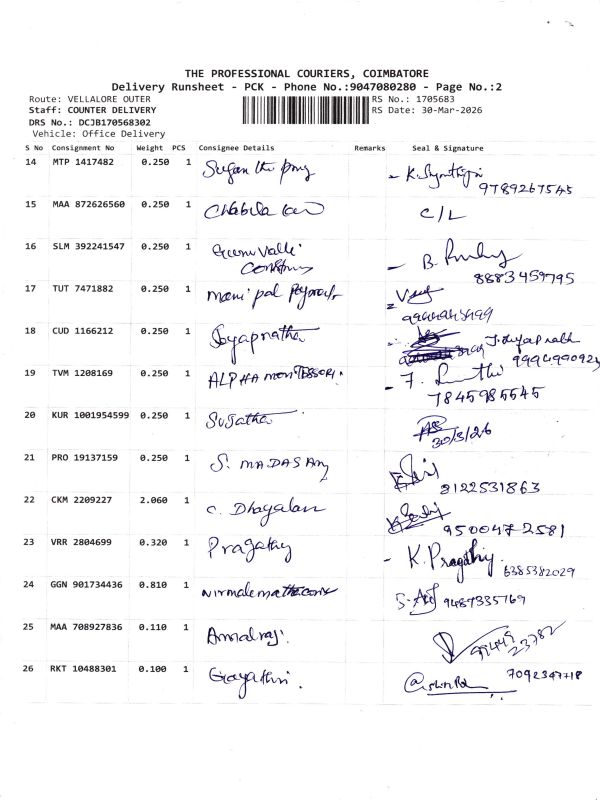 THE PROFESSIONAL COURIERS, COIMBATORE
Delivery Runsheet - PCK - Phone No.:9047080280 - Page No.:2
Route: VELLALORE OUTER RS No.: 1705683
Staff: COUNTER DELIVERY RS Date: 30-Mar-2026
DRS No.: DCJB170568302
Vehicle: Office Delivery
S No Consignment No Weight PCS Consignee Details Remarks Seal & Signature
14 MTP 1417482 0.250 1
9789267545
15 MAA 872626560 0.250 1 C/L
16 SLM 392241547 0.250 1 B.
8883459795
17 TUT 7471882 0.250 1 manipal
18 CUD 1166212 0.250 1 Jayapratha
19 TVM 1208169 0.250 1 ALPHA MONTESSORI.
7845985545
20 KUR 1001954599 0.250 1 Sujatha
30/3/26
21 PRO 19137159 0.250 1 S. MADASAmy
8122531863
22 CKM 2209227 2.060 1 C. Dhayalan
9500472581
23 VRR 2804699 0.320 1 Pragathy K. Pragathy
6385382029
24 GGN 901734436 0.810 1 9487335769
25 MAA 708927836 0.110 1 Amalraj. 99449
23782
26 RKT 10488301 0.100 1 Gayathri. 7092347718